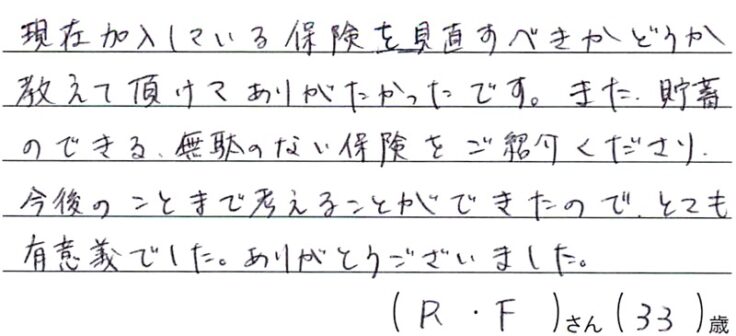 現在加入している保険を見直すべきかどうか
教えて頂けてありがたかったです。また、貯蓄
のできる、無駄のない保険をご紹介くださり、
今後のことまで考えることができたので、とても
有意義でした。ありがとうございました。
(R・F)さん(33)歳